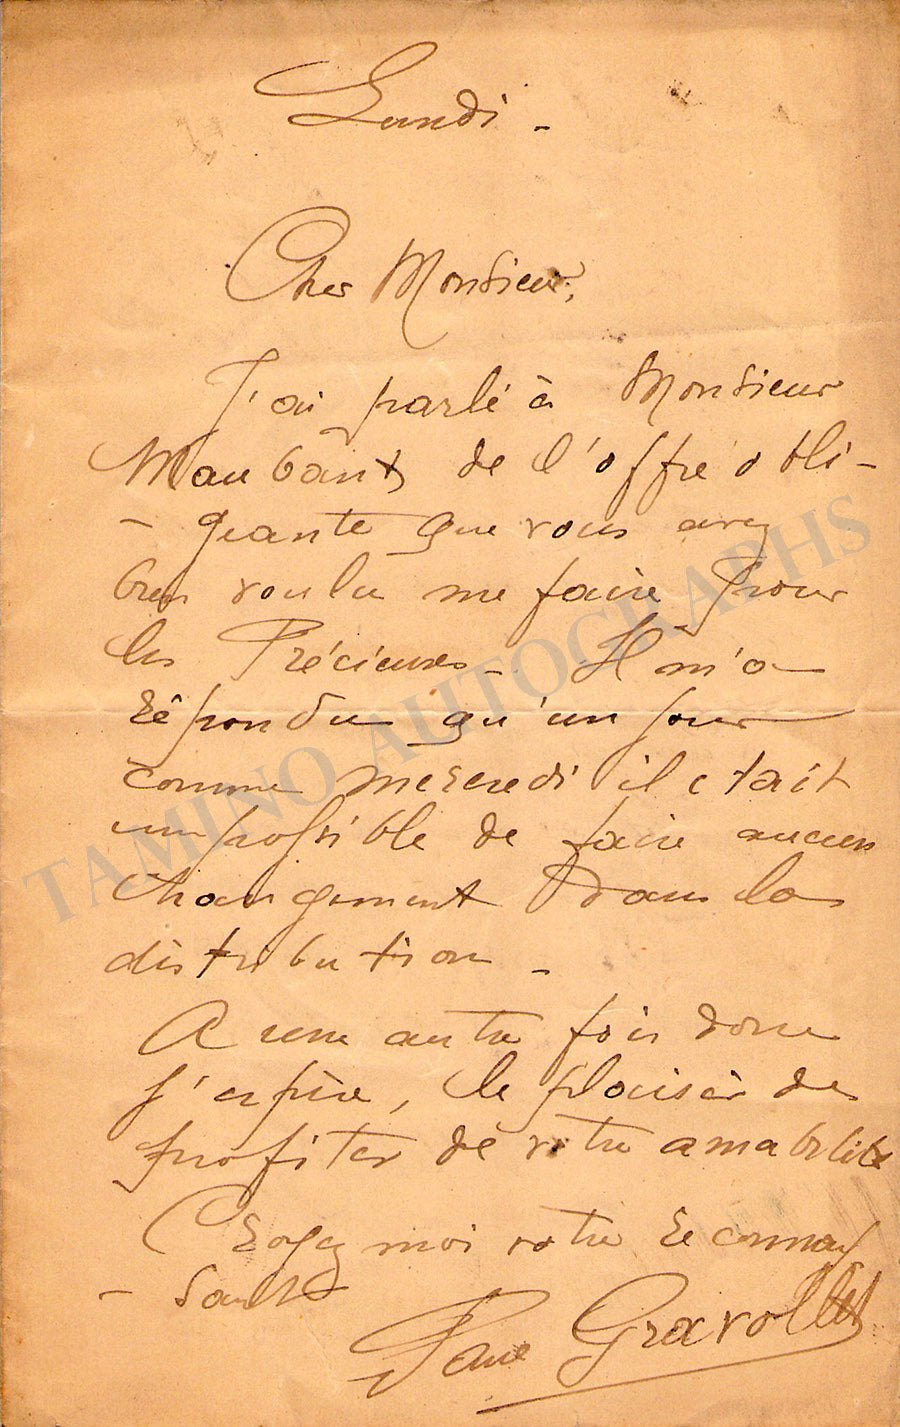 Lundi -
Cher Monsieur,
J'ai parlé à Monsieur
Maubant de l'offre obli-
- geante que vous avez
bien voulu me faire pour
les Précieuses - Il m'a
répondu qu'un jour
comme mercredi il était
impossible de faire aucun
changement dans la
distribution -
A une autre fois donc
j'espère, le plaisir de
profiter de votre amabilité
Croyez moi votre reconnais
- sant
Gravollet
TAMINO AUTOGRAPHS